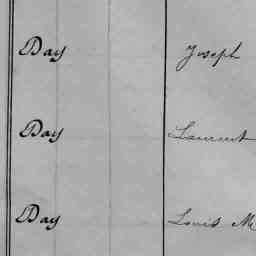 Day Joseph
Day Laurent
Day Louis M